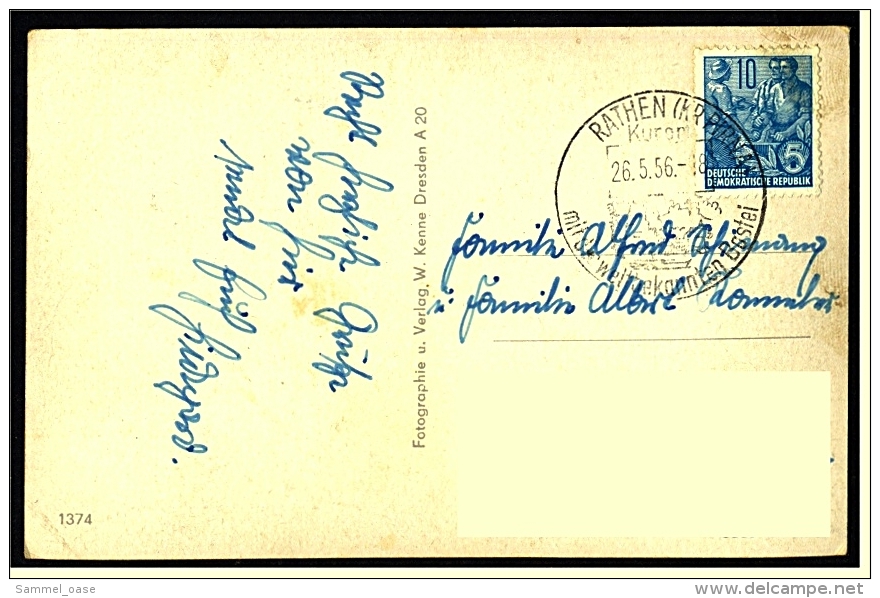 Recht herzliche Grüße
von hier
sendet
10
DEUTSCHE
DEMOKRATISCHE REPUBLIK
5
RATHEN (KR. PIRNA)
Kurort
26.5.56.-18
mit der weltbekannten Bastei
Familie Alfred
u. Familie Albert
Fotographie u. Verlag, W. Kenne Dresden A 20
1374
Sammel_oase
delcampe.net